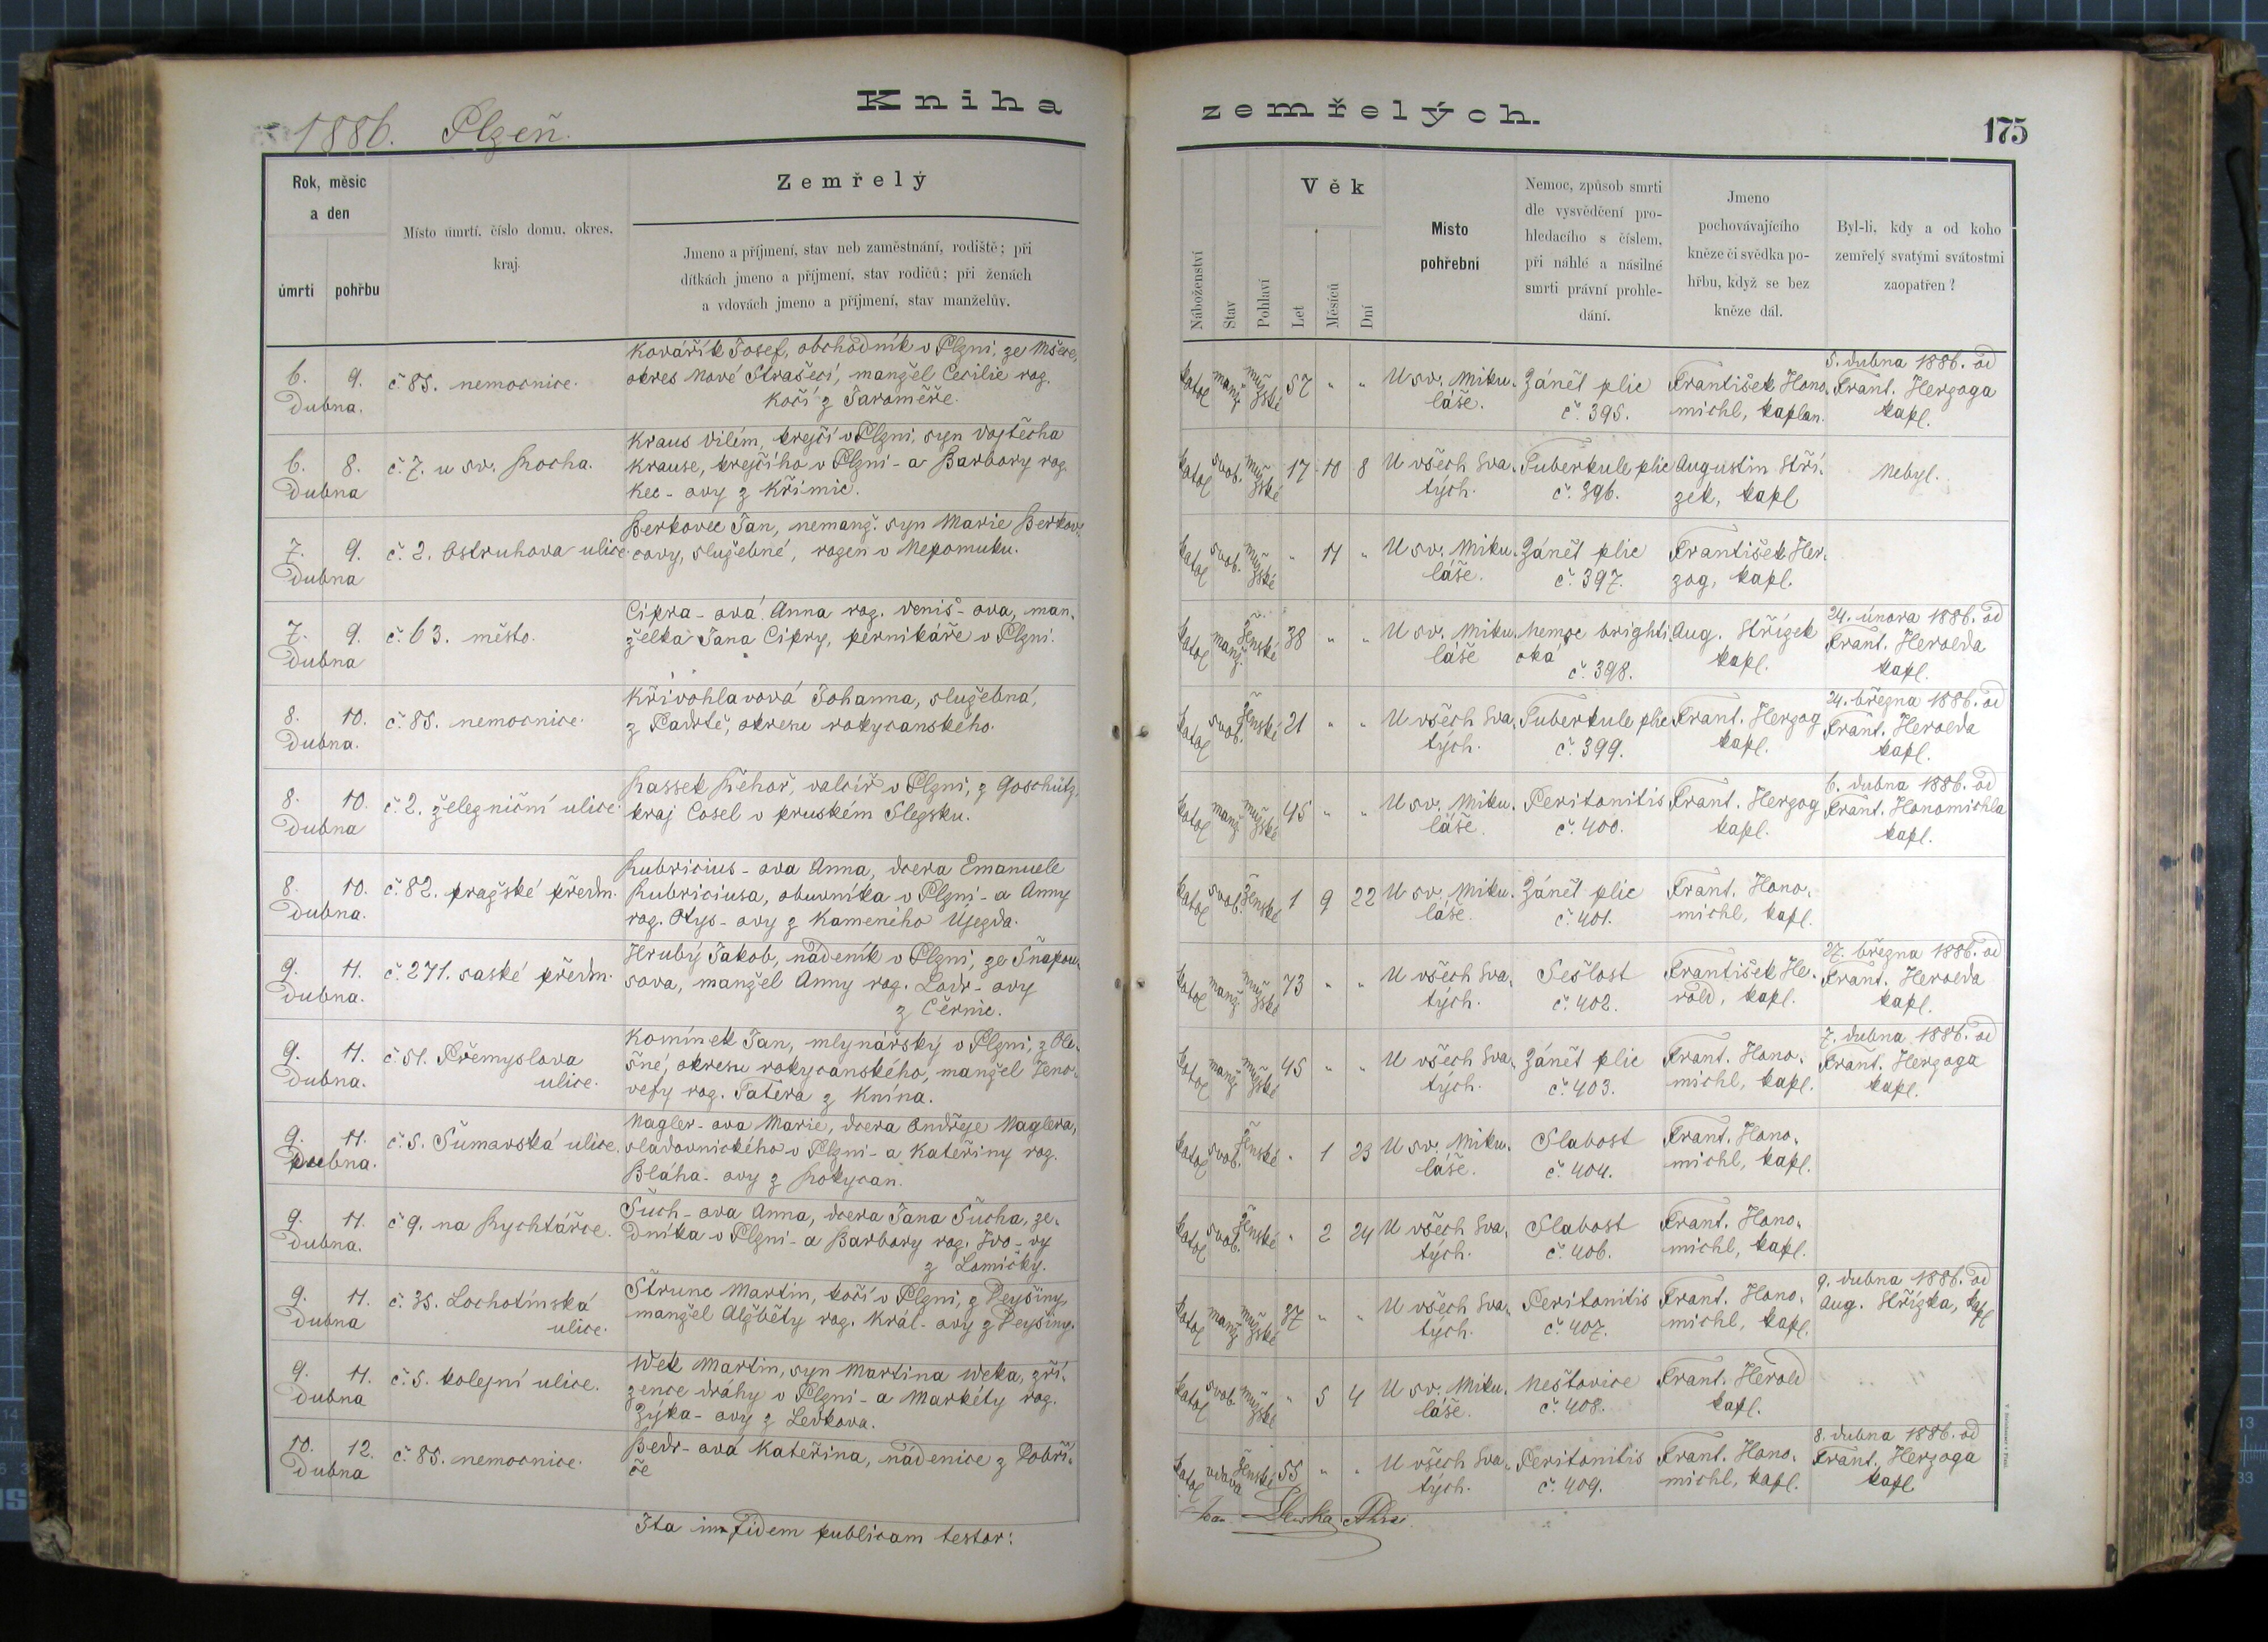 Kniha zemřelých.
1886. Plzeň.
175
Rok, měsíc a den
úmrtí
pohřbu
Místo úmrtí, číslo domu, okres, kraj.
Zemřelý
Jmeno a příjmení, stav neb zaměstnání, rodiště; při
dítkách jmeno a příjmení, stav rodičů; při ženách
a vdovách jmeno a příjmení, stav manželův.
Náboženství
Stav
Pohlaví
Věk
Let
Měsíců
Dní
Místo pohřební
Nemoc, způsob smrti
dle vysvědčení pro-
hledacího s číslem,
při náhlé a násilné
smrti právní prohle-
dání.
Jmeno
pochovávajícího
kněze či svědka po-
hřbu, když se bez
kněze dál.
Byl-li, kdy a od koho
zemřelý svatými svátostmi
zaopatřen?
6. 9. Dubna.
č 85. nemocnice.
Kovářík Josef, obchodník v Plzni, ze Mšece,
okres Nové Strašecí, manžel Cecilie roz.
Kočí z Jaroměře.
katol manž mužské 57 " "
U sv. Miku-
láše.
Zánět plic
č. 395.
František Hono-
michl, kaplan.
5. dubna 1886. od
Frant. Herzoga
kapl.
6. 8. Dubna
č. 7. u sv. Rocha.
Kraus Vilím, krejčí v Plzni, syn Vojtěcha
Krause, krejčího v Plzni - a Barbory roz.
Kec - ovy z Křimic.
katol svob. mužské 17 10 8
U všech Sva-
tých.
Tuberkule plic
č. 396.
Augustin Stří-
zek, kapl
Nebyl.
7. 9. Dubna
č. 2. Ostruhova ulice.
Berkovec Jan, nemanž. syn Marie Berkov-
covy, služebné, rozen v Nepomuku.
katol svob. mužské " 11 "
U sv. Miku-
láše.
Zánět plic
č. 397.
František Her-
zog, kapl.
7. 9. Dubna
č. 63. město.
Cipra - ová Anna roz. Veniš - ova, man-
želka Jana Cipry, pernikáře v Plzni.
katol manž. ženské 38 " "
U sv. Miku-
láše
Nemoc brighti-
cká
č. 398.
Aug. Střízek
kapl.
24. února 1886. od
Frant. Herolda
kapl.
8. 10. Dubna.
č. 85. nemocnice.
Křivohlavová Johanna, služebná,
z Padrtě, okresu rokycanského.
katol svob. ženské 21 " "
U všech Sva-
tých.
Tuberkule plic
č. 399.
Frant. Herzog
kapl.
24. března 1886. od
Frant. Herolda
kapl.
8. 10. Dubna
č. 2. železniční ulice.
Kassek Řehoř, valcíř v Plzni, z Goschütz,
kraj Cosel v pruském Slezsku.
katol manž mužské 45 " "
U sv. Miku-
láše.
Peritonitis
č. 400.
Frant. Herzog
kapl.
6. dubna 1886. od
Frant. Honomichla
kapl.
8. 10. Dubna.
č. 82. pražské předm.
Rubricius - ova Anna, dcera Emanuele
Rubriciusa, obuvníka v Plzni - a Anny
roz. Otys - ovy z Kameného Ujezda.
katol svob. ženské 1 9 22
U sv. Miku-
láše.
Zánět plic
č. 401.
Frant. Hono-
michl, kapl.
9. 11. Dubna.
č. 271. saské předm.
Hrubý Jakob, nádeník v Plzni, ze Šňapou-
sova, manžel Anny roz. Lodr - ovy
z Černic.
katol manž mužské 73 " "
U všech Sva-
tých.
Sešlost
č. 402.
František He-
rold, kapl.
27. března 1886. od
Frant. Herolda
kapl.
9. 11. Dubna.
č. 51. Přemyslova
ulice.
Komínek Jan, mlynářský v Plzni, z Ole-
šné, okresu rokycanského, manžel Jeno-
vefy roz. Tatera z Knína.
katol manž mužské 45 " "
U všech Sva-
tých.
Zánět plic
č. 403.
Frant. Hono-
michl, kapl.
7. dubna 1886. od
Frant. Herzoga
kapl.
9. 11. Dubna.
č. 5. Šumavská ulice.
Nagler - ova Marie, dcera Ondřeje Naglera,
sladovnického v Plzni - a Kateřiny roz.
Bláha - ovy z Rokycan.
katol svob. ženské " 1 23
U sv. Miku-
láše.
Slabost
č. 404.
Frant. Hono-
michl, kapl.
9. 11. Dubna.
č 9. na Rychtářce.
Šuch - ova Anna, dcera Jana Šucha, ze-
dníka v Plzni - a Barbory roz. Ivo - vy
z Lomičky.
katol svob. ženské " 2 24
U všech Sva-
tých.
Slabost
č. 406.
Frant. Hono-
michl, kapl.
9. 11. Dubna
č. 35. Lochotínská
ulice.
Štrunc Martin, kočí v Plzni, z Dejšiny,
manžel Alžběty roz. Král - ovy z Dejšiny.
katol manž mužské 37 " "
U všech Sva-
tých.
Peritonitis
č. 407.
Frant. Hono-
michl, kapl.
9. dubna 1886. od
Aug. Střízka, kapl
9. 11. Dubna
č. 5. kolejní ulice.
Wek Martin, syn Martina Weka, zří-
zence dráhy v Plzni - a Markéty roz.
Zýka - ovy z Ledkova.
katol svob. mužské " 5 4
U sv. Miku-
láše.
Neštovice
č. 408.
Frant. Herold
kapl.
10. 12. Dubna
č. 85. nemocnice.
Bedr - ová Kateřina, nádenice z Dobří-
če
katol vdova ženské 55 " "
U všech Sva-
tých.
Peritonitis
č. 409.
Frant. Hono-
michl, kapl.
8. dubna 1886. od
Frant. Herzoga
kapl
Ita in fidem publicam testor: